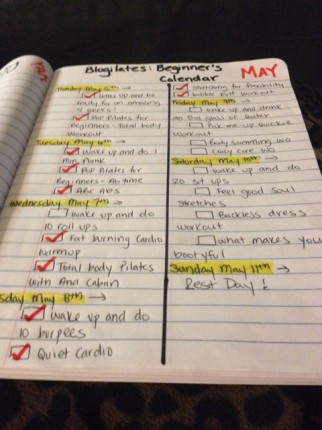 Blogilates: Beginner's
Calendar
MAY
Monday May 5th →
Wake up and be
ready for an amazing
4 weeks!
Pop Pilates for
Beginners: Total body
workout
Tuesday May 6th →
Wake up and do 1
min plank
Pop Pilates for
Beginners - Abtime
ABC Abs
Wednesday May 7th →
Wake up and do
10 roll ups
Fat burning Cardio
Warmup
Total body Pilates
with Ana Caban
sday May 8th →
Wake up and do
10 burpees
Quiet Cardio
Stretching for flexibility
Friday May 9th →
wake up and drink
glass of water
Pick me-up Quickie
workout
Body Something
Saturday May 10th →
wake up and do
20 sit ups
Feel good Soul
stretches
Backless dress
workout
What makes you
bootyful
Sunday May 11th →
Rest Day!